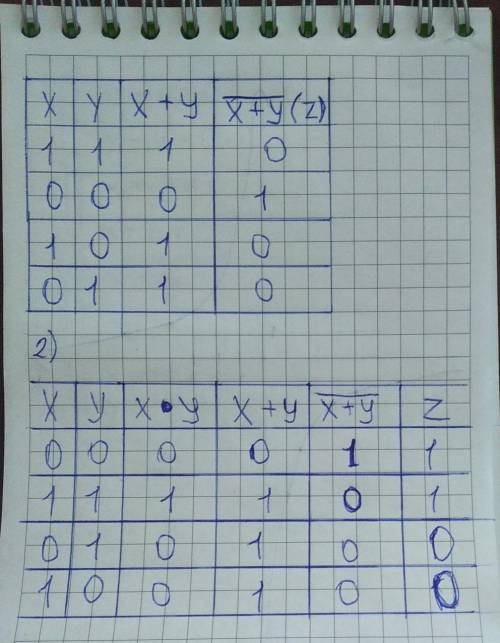 X Y X + Y X̅+̅Y̅ (Z)
1 1 1 0
0 0 0 1
1 0 1 0
0 1 1 0
2)
X Y X • Y X + Y X̅+̅Y̅ Z
0 0 0 0 1 1
1 1 1 1 0 1
0 1 0 1 0 0
1 0 0 1 0 0